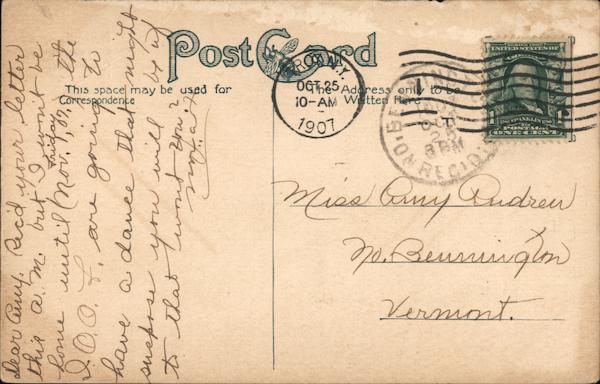 Post Card
This space may be used for
Correspondence
The Address only to be
Written Here
TROY, N.Y.
OCT 25
10-AM
1907
REC'D
SERIES 1902
UNITED STATES OF
AMERICA
FRANKLIN
POSTAGE
ONE CENT
Dear Amy. Rec'd your letter
this a.m. but I won't be
home until Friday Nov. 1, 07, the
I.O.O.F. are going to
have a dance that night
suspose you will be up
to that wont you?
Miss Amy Andrew
No. Bennington
Vermont.